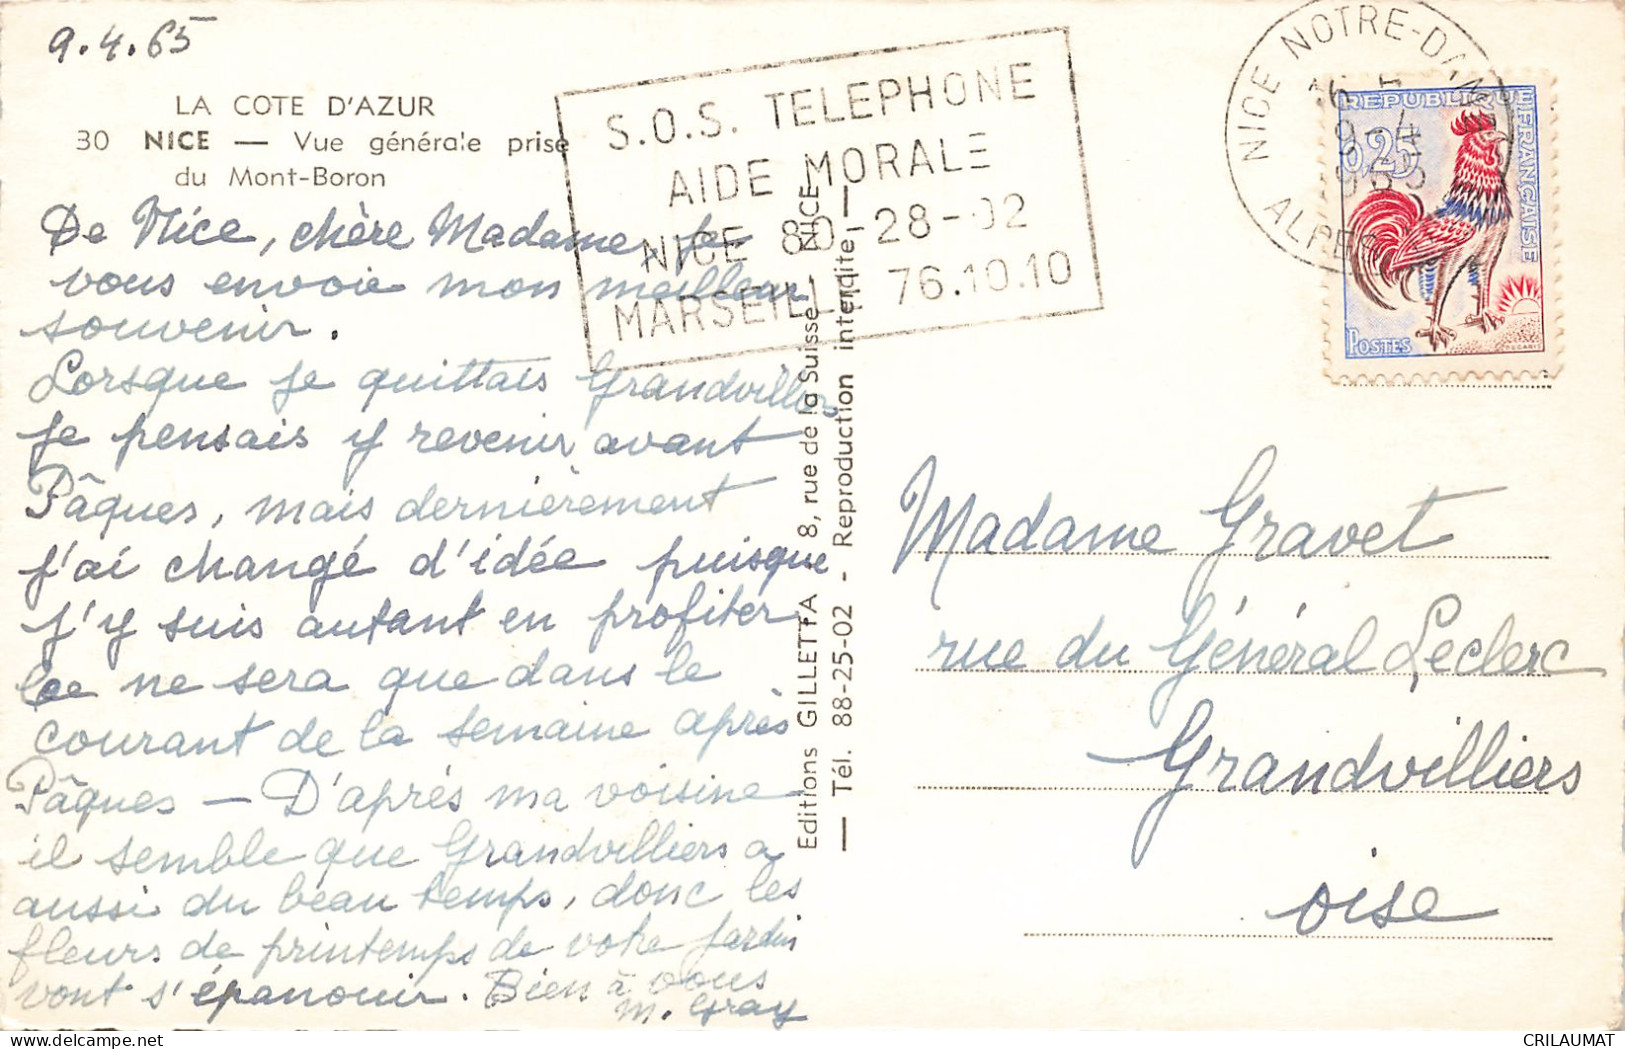 9.4.65
LA COTE D'AZUR
30 NICE — Vue générale prise
du Mont-Boron
De Nice, chère Madame, je
vous envoie mon meilleur
souvenir.
Lorsque je quittais Grandvilliers
je pensais y revenir avant
Pâques, mais dernièrement
j'ai changé d'idée puisque
j'y suis autant en profiter
ce ne sera que dans le
courant de la semaine après
Pâques — D'après ma voisine
il semble que Grandvilliers a
aussi du beau temps, donc les
fleurs de printemps de votre jardin
vont s'épanouir. Bien à vous
M. Gray
S.O.S. TELEPHONE
AIDE MORALE
NICE 80-28-02
MARSEILLE 76.10.10
Editions GILLETTA, 8, rue de la Suisse - NICE
— Tél. 88-25-02 - Reproduction interdite —
NICE NOTRE-DAME
9-4
1965
ALPES
REPUBLIQUE FRANÇAISE
0,25
POSTES
DECARIS
Madame Gravet
rue du Général Leclerc
Grandvilliers
oise
CRILAUMAT